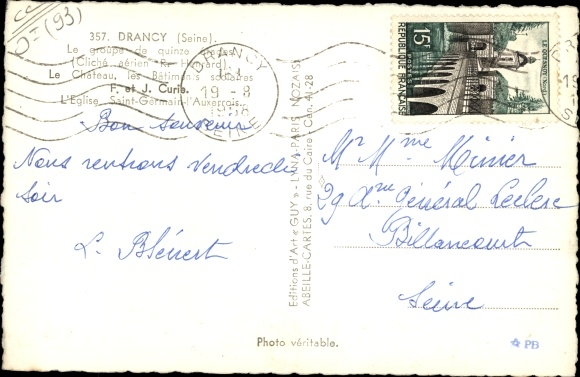 D=(93)
357. DRANCY (Seine).
Le groupe de quinze
(Cliché aérien R. Henrard).
Le Château, les Bâtiments scolaires
F. et J. Curie.
L'Église Saint-Germain-l'Auxerrois.
DRANCY
19 - 8
SEINE
15F
POSTES
REPUBLIQUE FRANÇAISE
Bon Souvenir
Nous rentrons Vendredi
soir
L. Blénert
Editions d'Art « GUY » - L'INA-PARIS NOZAIS
ABEILLE-CARTES, 8, rue du Caire - Cen. 41-28
Mr Mme Minier
29 Ave Général Leclerc
Billancourt
Seine
Photo véritable.
PB